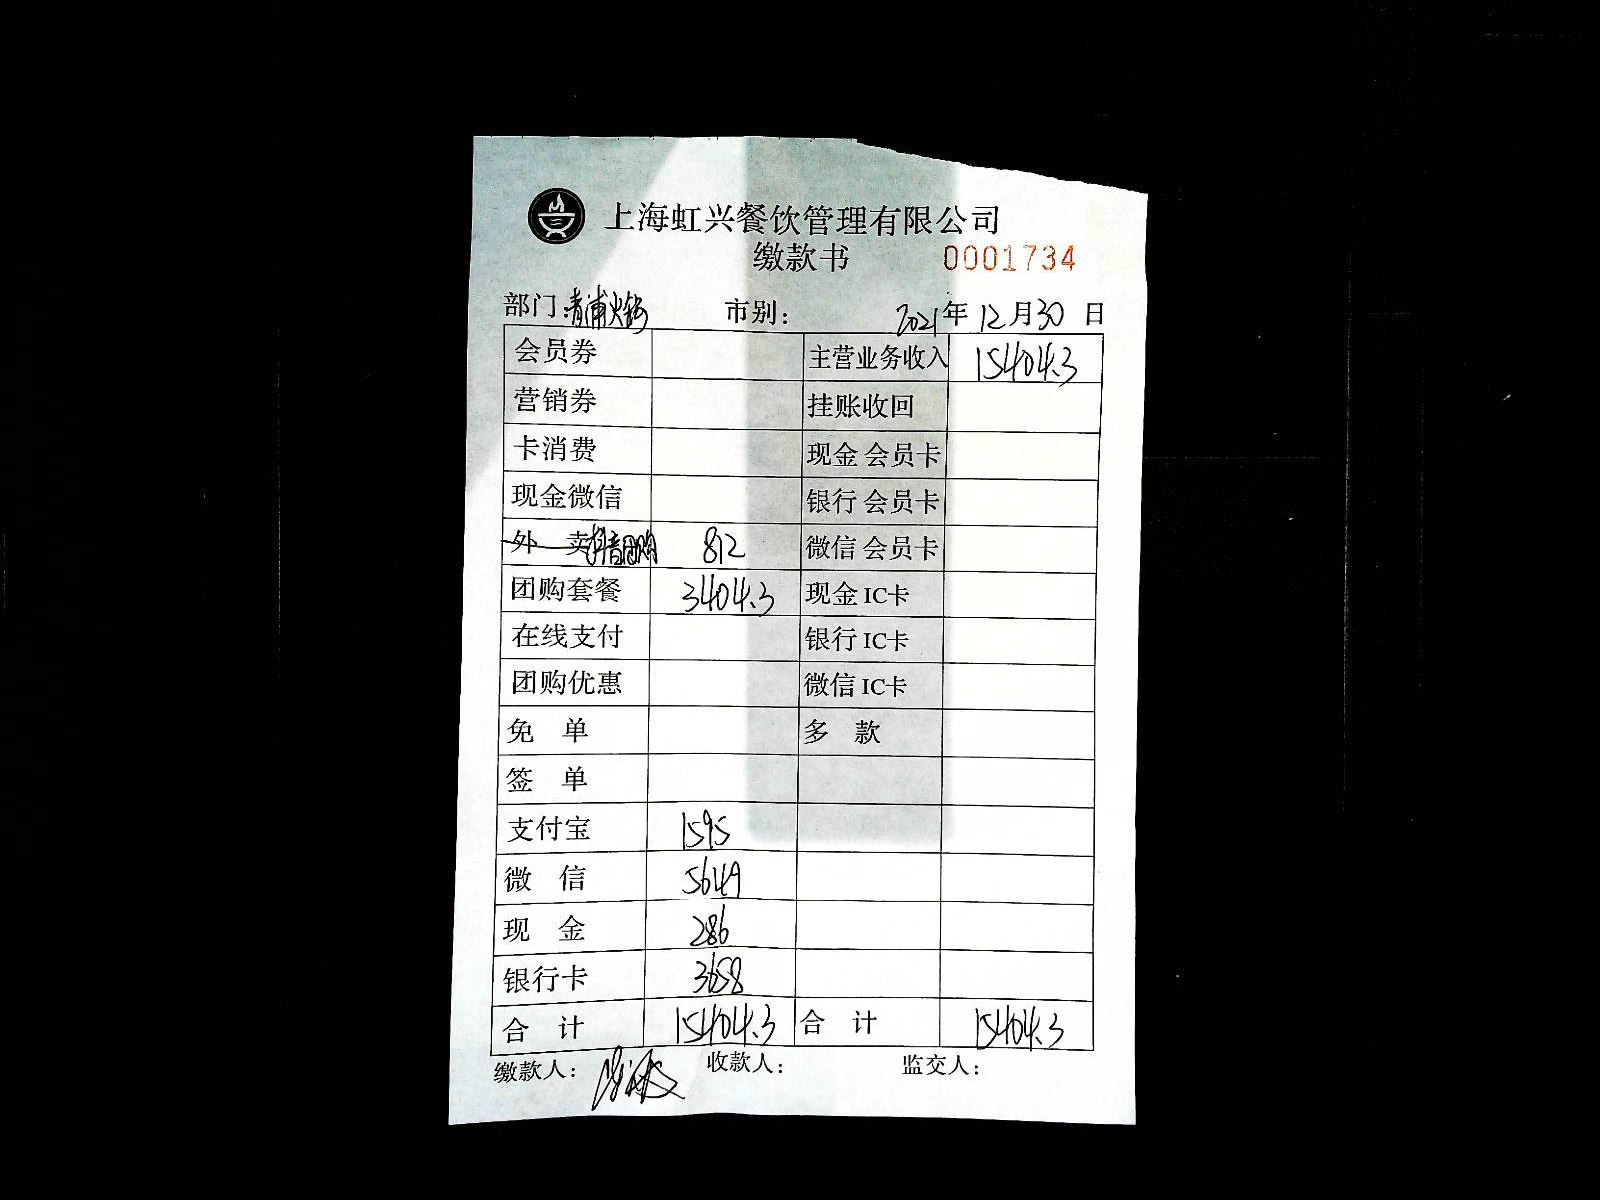 上海虹兴餐饮管理有限公司
缴款书 0001734
部门:青浦火锅 市别: 2021年12月30日
会员券 主营业务收入 15404.3
营销券 挂账收回
卡消费 现金 会员卡
现金微信 银行 会员卡
外 卖 抖音团购 812 微信 会员卡
团购套餐 3404.3 现金 IC卡
在线支付 银行 IC卡
团购优惠 微信 IC卡
免 单 多 款
签 单
支付宝 1595
微 信 5649
现 金 286
银行卡 3658
合 计 15404.3 合 计 15404.3
缴款人: 收款人: 监交人: